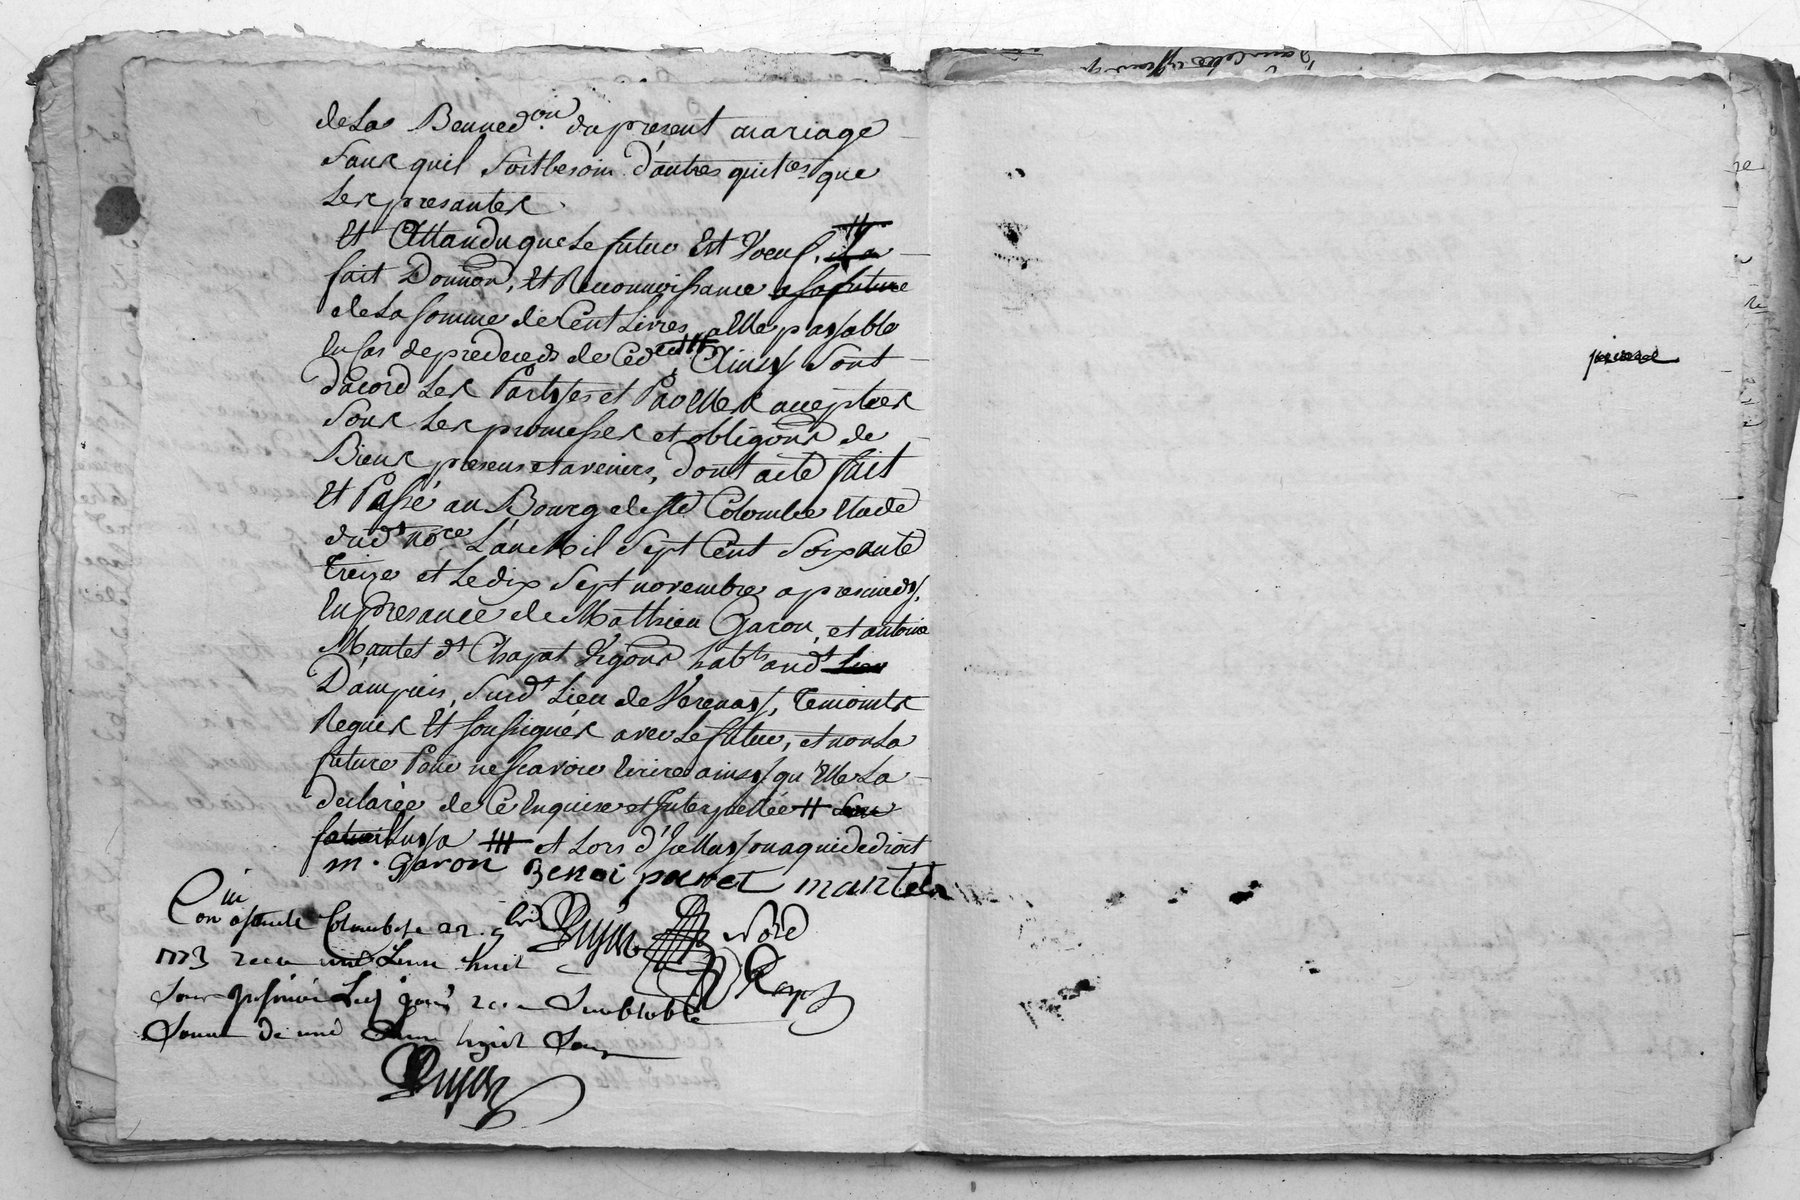 de La Benned.on du present mariage
sans quil soit besoin d'autres quit.ces que
Les presantes
Et Attandu que Le futur Est Voeuf, il a
fait Donnon, Et Reconnoissance a sa future
de La somme de Cent Livres, a Elle payable
En Cas de predeceds de Ced Ainsy sont
Dacord Les Partyes et Par Elles acceptées
sous Les promesses et obligons de
Biens presens et avenirs, Dont acte fait
Et Passé au Bourg de Ste Colombe Etude
dud.t no.re L'an Mil Sept Cent Soixante
Treize et Le dix Sept novembre apresmidy,
En presance de Mathieu Garon, et antoine
Mantet d.t Chapat Vigons habts aud.t Lieu
D'ampuis, Sud.t Lieu de Verenay, Temoints
Requis Et soussignés avec Le futur, et non La
future Pour ne scavoir Ecrire ainsy qu'Elle La
declarée de Ce Enquise et Interpellée
et Lors d'Icelluy sonaquidedroit
m. Garon Benoi pernet mantet
Con a sainte Colombe 22. 9bre
1773 recu une Livre huit
semblable
Somme de une Livre huit Sous
Dujon